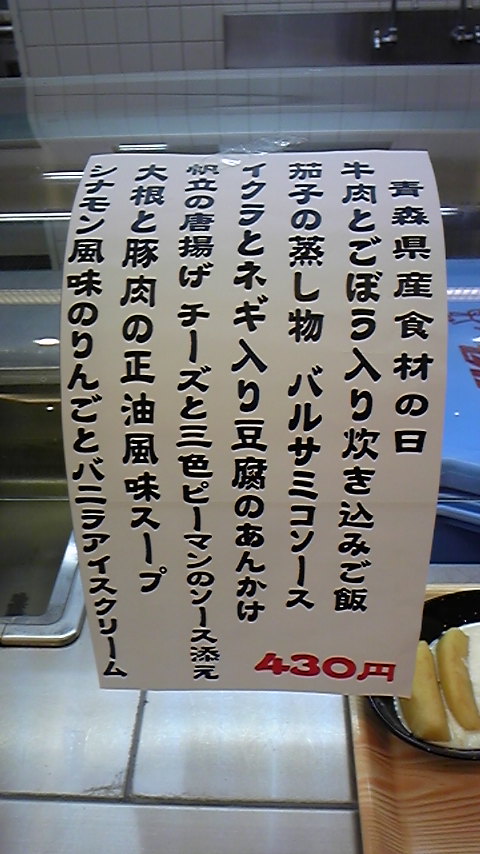 青森県産食材の日
牛肉とごぼう入り炊き込みご飯
茄子の蒸し物 バルサミコソース
イクラとネギ入り豆腐のあんかけ
帆立の唐揚げ チーズと三色ピーマンのソース添え
大根と豚肉の正油風味スープ
シナモン風味のりんごとバニラアイスクリーム
430円